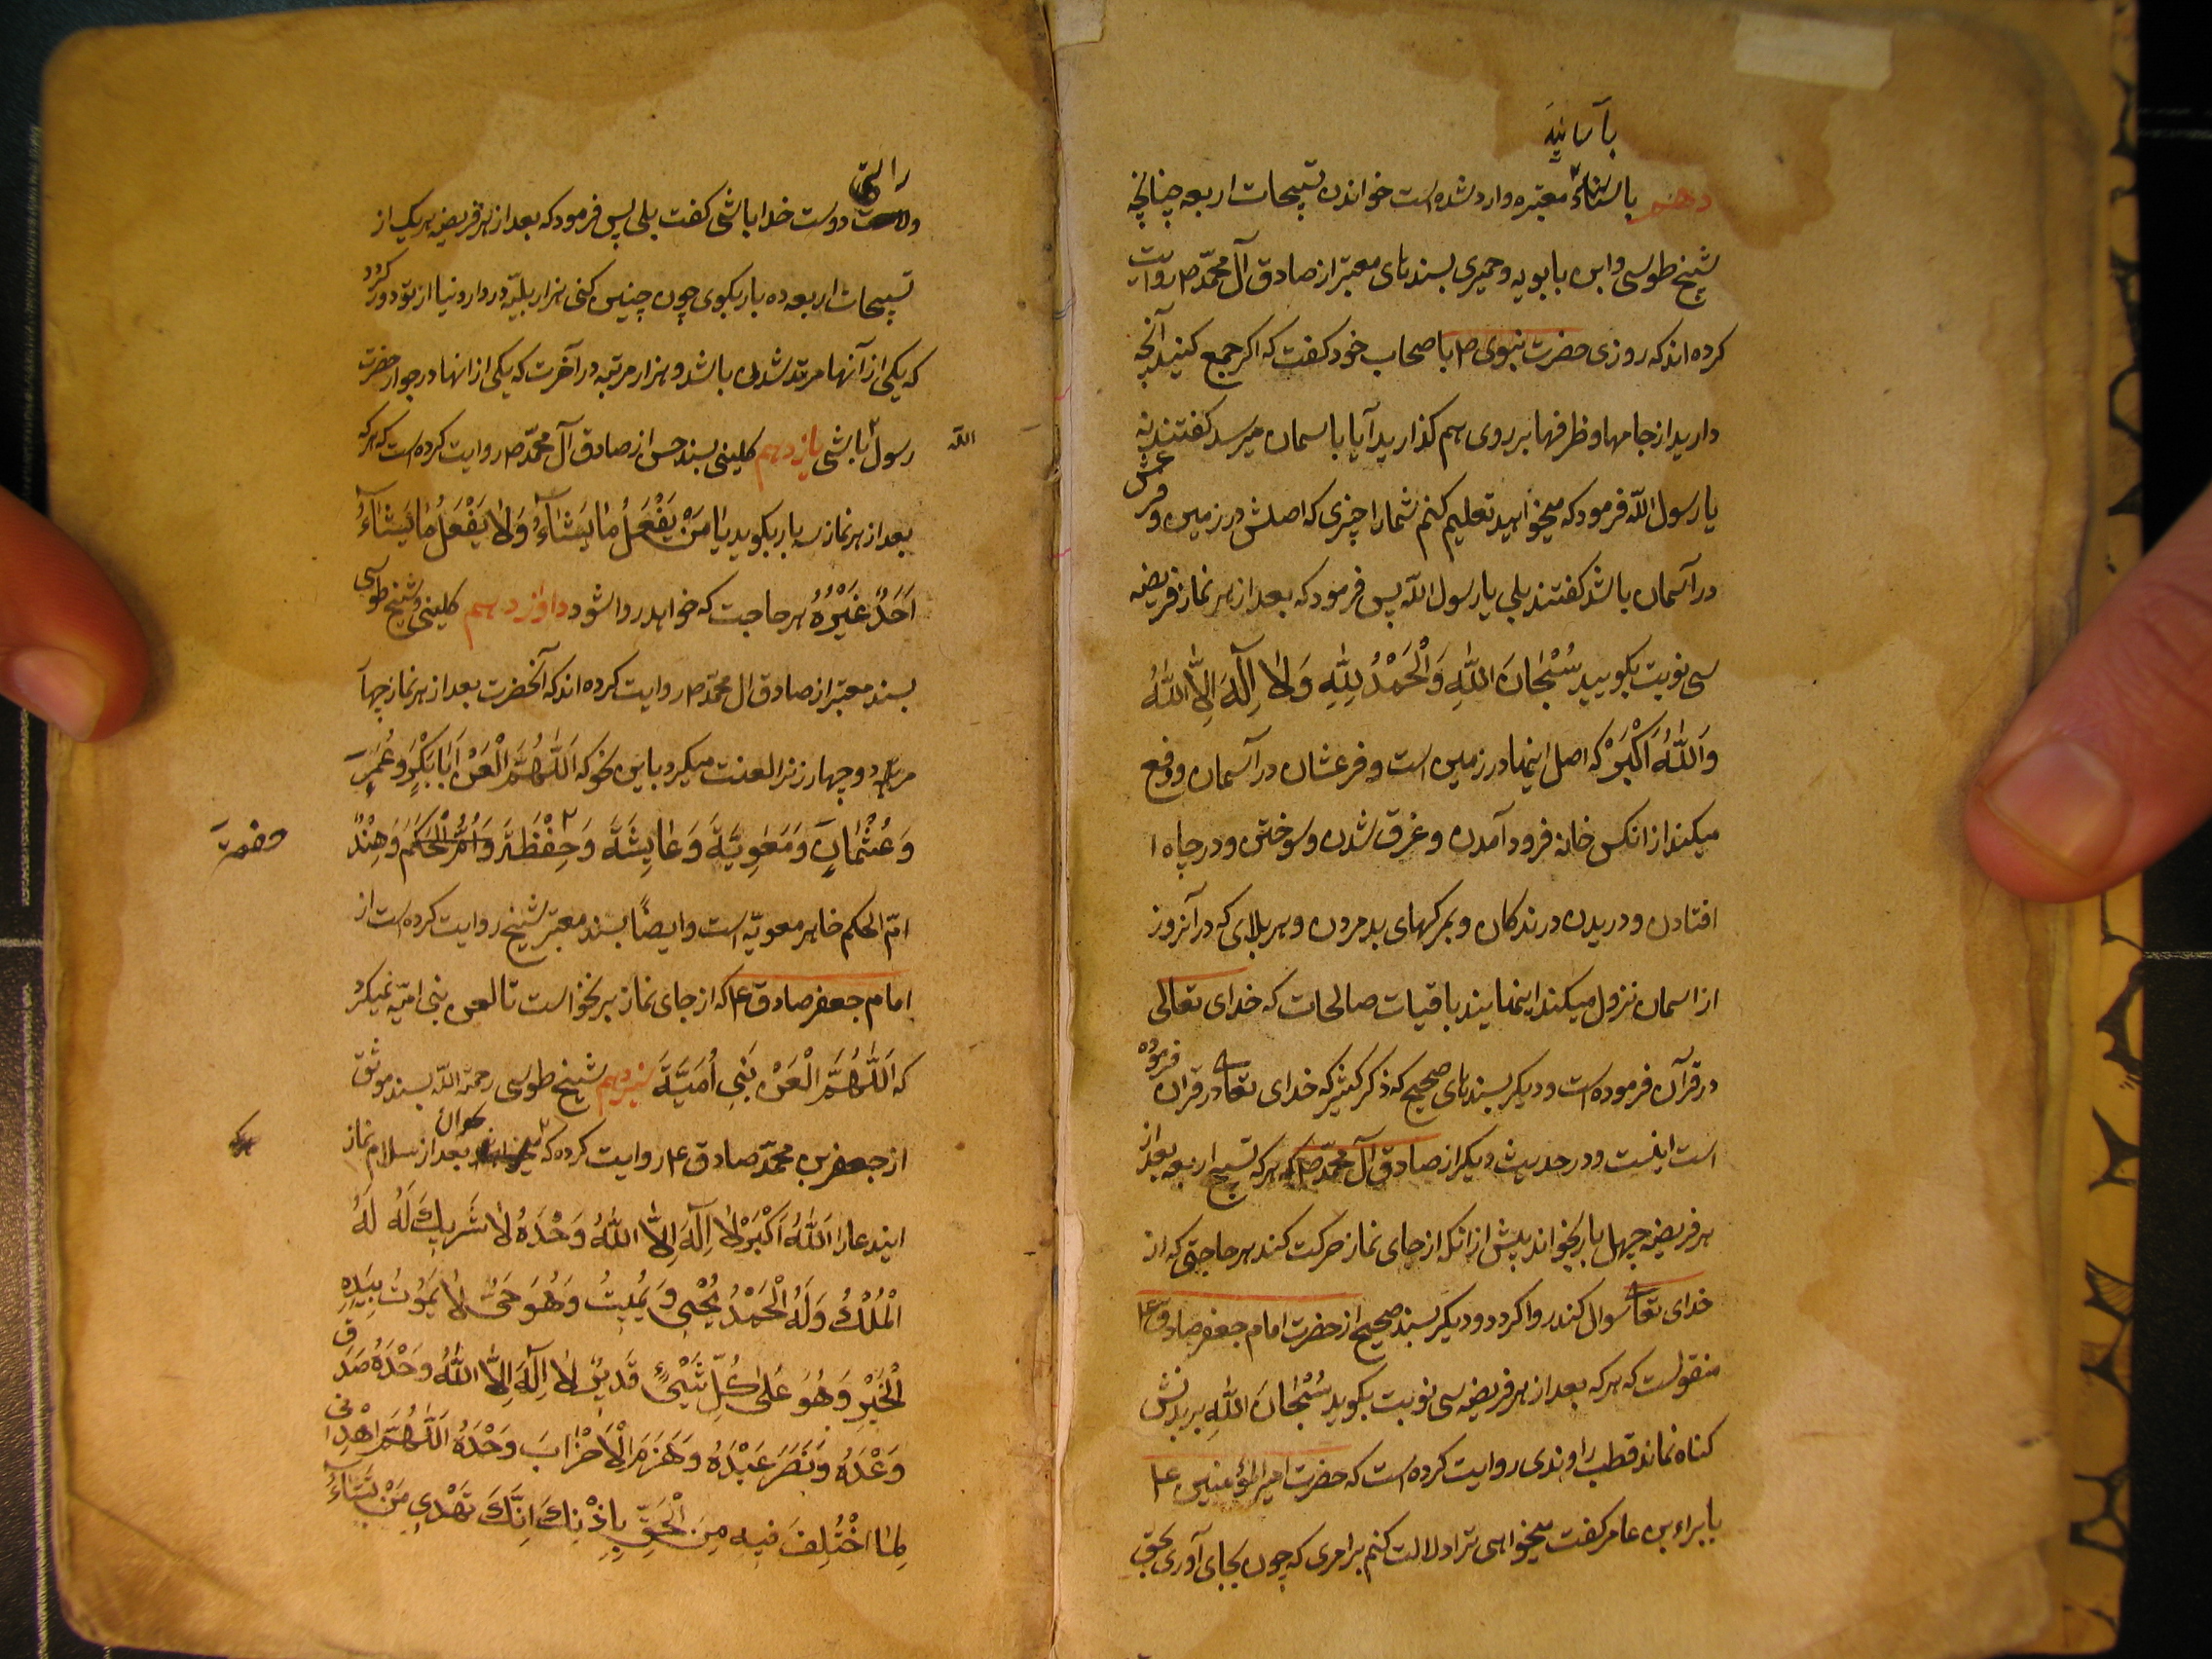 بأسانید
دهم باسناد معتبره وارد شده است خواندن تسبیحات اربعه چنانچه
شیخ طوسی و ابن بابویه و حمیری بسندهای معتبر از صادق آل محمّد ص روایت
کرده اند که روزی حضرت نبوی ص باصحاب خود کفت که اکر جمع کنید آنچه
دارید از جامها و ظرفها بر روی هم کذارید آیا باسمان میرسد کفتند نه
یا رسول اللّه فرمود که میخواهید تعلیم کنم شما را چیزی که اصلش در زمین و فرعش
در آسمان باشد کفتند بلی یا رسول اللّه پس فرمود که بعد از هر نماز فریضه
سی نوبت بکویید سُبْحَانَ اللّٰهِ وَالْحَمْدُ لِلّٰهِ وَلَا اِلٰهَ اِلَّا اللّٰهُ
وَاللّٰهُ اَکْبَرْ که اصل اینها در زمین است و فرعشان در آسمان و دفع
میکند از انکس خانه فرود آمدن و غرق شدن و سوختن و در چاه ا
افتادن و دریدن درندکان و بمرکهای بد مردن و هر بلای که در آنروز
از اسمان نزول میکند اینهایند باقیات صالحات که خدای تعالی
در قرآن فرموده است و دیکر بسندهای صحیح که ذکر کثیر که خدای تعا در قران فرموده
است اینست و در حدیث دیکر از صادق آل محمّد ص که هر که تسبیح اربعه بعد از
هر فریضه چهل بار بخواند پیش از انکه از جای نماز حرکت کند هر حاجتی که از
خدای تعا سوال کند روا کردد و دیکر بسند صحیح از حضرت امام جعفر صادق ع
منقولست که هر که بعد از هر فریضه سی نوبت بکوید سُبْحَانَ اللّٰهِ بر بدنش
کناه نماند قطب راوندی روایت کرده است که حضرت امیر المؤمنین ع
با براء بن عامر کفت میخواهی ترا دلالت کنم بر امری که چون بجای آوری بحق
راستی
دوست خدا باشی کفت بلی پس فرمود که بعد از هر فریضه هر یک از
تسبیحات اربعه ده بار بکوی چون چنین کنی هزار بلیّه در دار دنیا از تو دور کردد
که یکی از آنها مرتد شدن باشد و هزار مرتبه در آخرت که یکی از انها در جوار حضرت
رسول باشی یازدهم کلینی بسند حسن از صادق آل محمّد ص روایت کرده است که هر که
اللّه
بعد از هر نماز سه بار بکوید یَا مَنْ یَفْعَلُ مَا یَشَآءُ وَلَا یَفْعَلُ مَا یَشَآءُ
اَحَدٌ غَیْرُهُ هر حاجت که خواهد روا شود داوازدهم کلینی و شیخ طوسی
بسند معتبر از صادق ال محمّد ص روایت کرده اند که آنحضرت بعد از هر نماز چهار
مرد و چهار زن را لعنت میکرد باین نحو که اَللّٰهُمَّ الْعَنْ اَبَا بَکْرٍ وَ عُمَرَ
وَ عُثْمَانَ وَ مَعٰوِیَةَ وَ عَایِشَةَ وَ حِفْظَةَ وَ اُمَّ الْحَکَمَ وَ هِنْدٌ
حفصة
امّ الحکم خاهر معویّه است و ایضًا بسند معتبر شیخ روایت کرده است از
امام جعفر صادق ع که از جای نماز بر نخواست تا لعن بنی امیّه نمیکرد
که اَللّٰهُمَّ الْعَنْ بَنِی اُمَیَّةَ سیزدهم شیخ طوسی رحمة اللّه بسند موثق
از جعفر بن محمّد صادق ع روایت کرده که بخوان بعد از سلام نماز
ایندعا را اَللّٰهُ اَکْبَرْ لَا اِلٰهَ اِلَّا اللّٰهُ وَحْدَهُ لَا شَرِیكَ لَهُ لَهُ
الْمُلْكُ وَلَهُ الْحَمْدُ یُحْیِی وَ یُمِیتُ وَ هُوَ حَیٌّ لَا یَمُوتُ بِیَدِهِ
الْخَیْرِ وَ هُوَ عَلَی کُلِّ شَیْیءٍ قَدِیٌر لَا اِلٰهَ اِلَّا اللّٰهُ وَحْدَهُ صَدَق
وَعْدَهُ وَ نَصَرَ عَبْدَهُ وَ هَزَمَ الْاَحْزَابَ وَحْدَهُ اَللّٰهُمَّ اهْدِنی
لِمَا اخْتُلِفَ فِیهِ مِنَ الْحَقِّ بِاِذْنِكَ اِنَّكَ تَهْدِی مَنْ تَشَآءُ